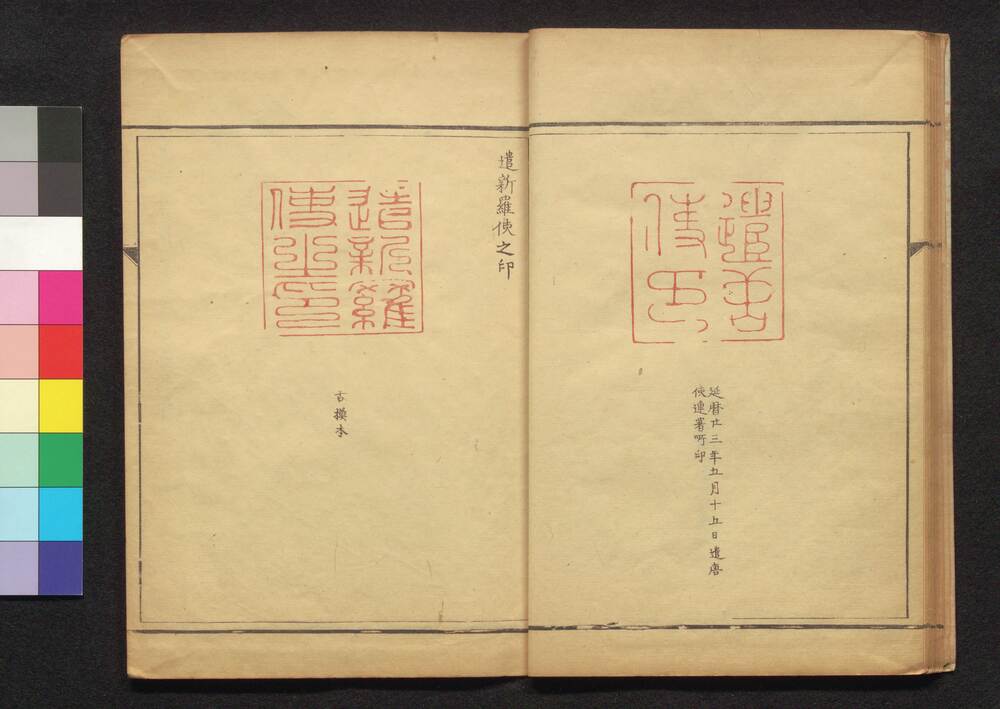 遣唐
使印
延暦廿三年五月十五日遣唐
使連署所印
遣新羅使之印
遣新羅
使之印
古摸本